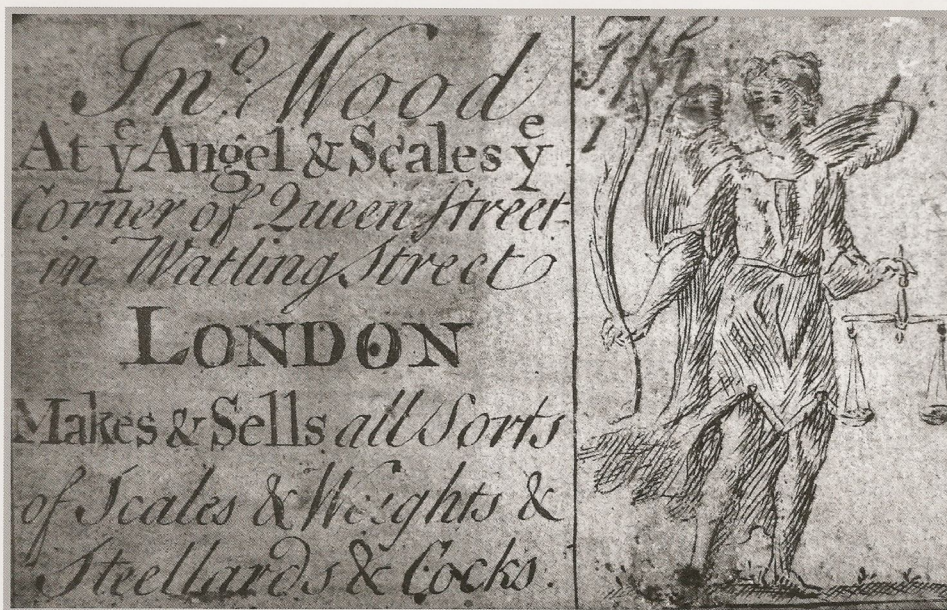 Jnº. Wood
At yͤ Angel & Scales yͤ
Corner of Queen Street
in Watling Street
LONDON
Makes & Sells all Sorts
of Scales & Weights &
Steellards & Cocks.